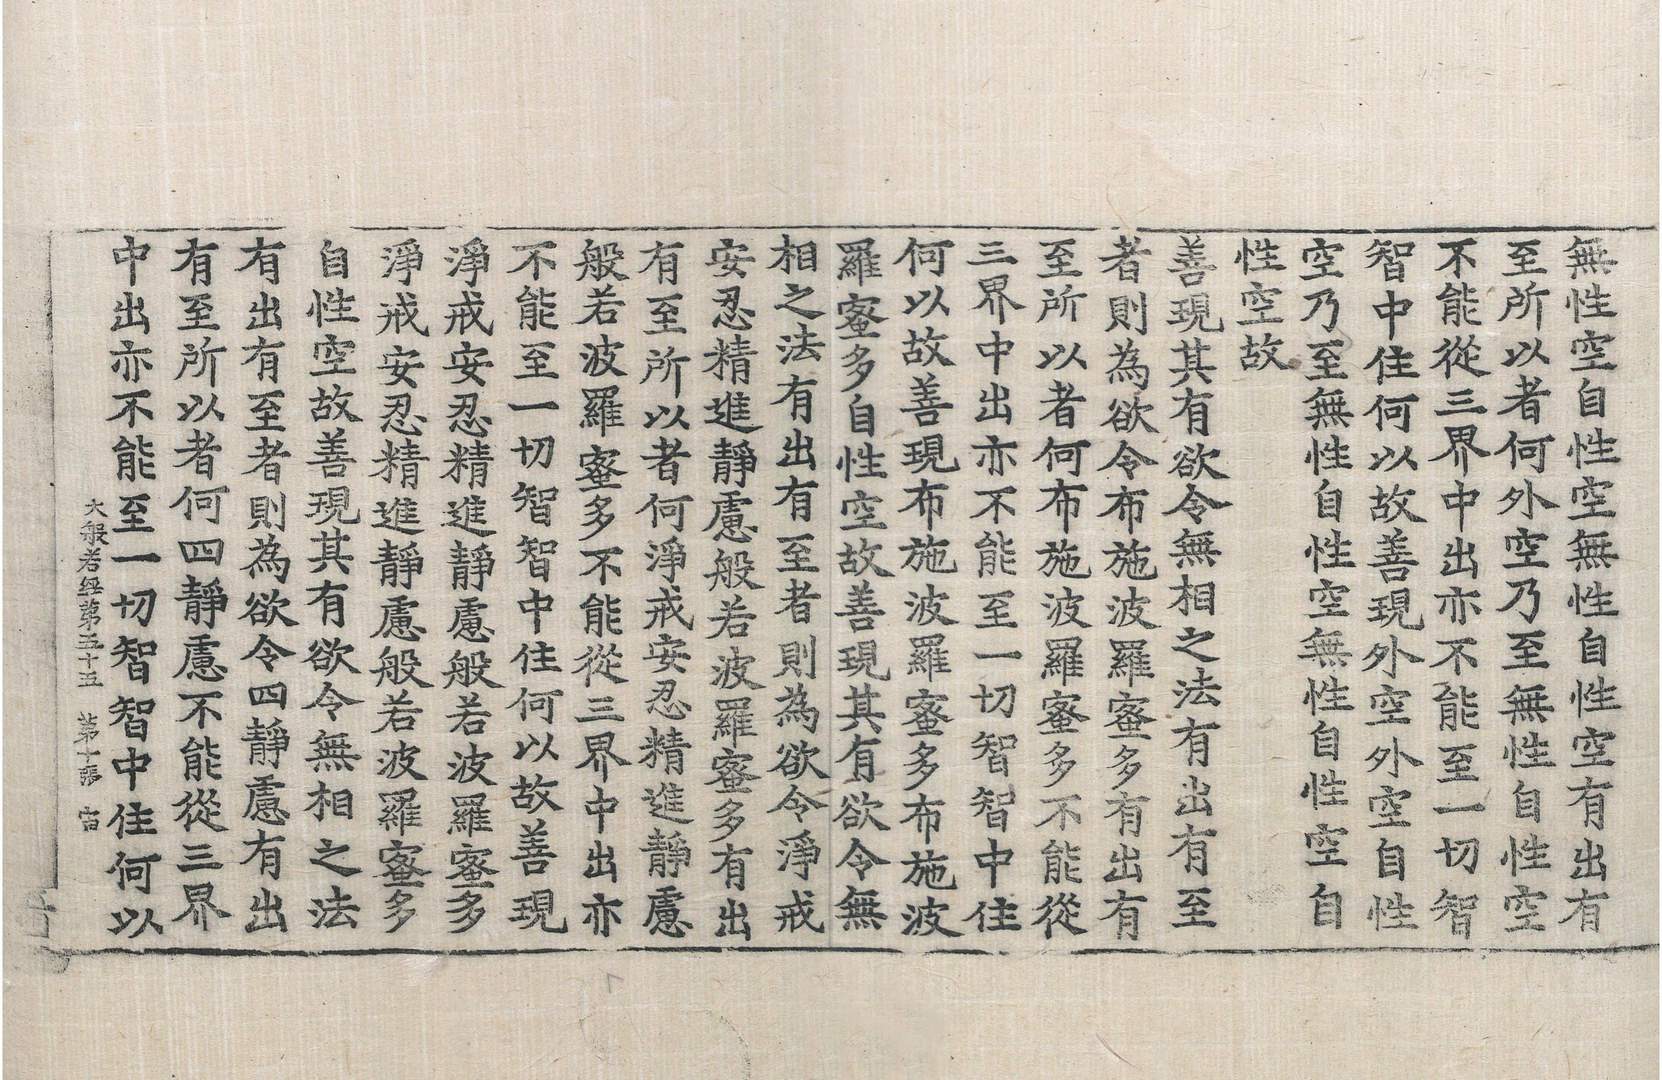 無性空自性空無性自性空有出有
至所以者何外空乃至無性自性空
不能從三界中出亦不能至一切智
智中住何以故善現外空外空自性
空乃至無性自性空無性自性空自
性空故
善現其有欲令無相之法有出有至
者則為欲令布施波羅蜜多有出有
至所以者何布施波羅蜜多不能從
三界中出亦不能至一切智智中住
何以故善現布施波羅蜜多布施波
羅蜜多自性空故善現其有欲令無
相之法有出有至者則為欲令淨戒
安忍精進靜慮般若波羅蜜多有出
有至所以者何淨戒安忍精進靜慮
般若波羅蜜多不能從三界中出亦
不能至一切智智中住何以故善現
淨戒安忍精進靜慮般若波羅蜜多
淨戒安忍精進靜慮般若波羅蜜多
自性空故善現其有欲令無相之法
有出有至者則為欲令四靜慮有出
有至所以者何四靜慮不能從三界
中出亦不能至一切智智中住何以
大般若經第五十五 第十張 宙